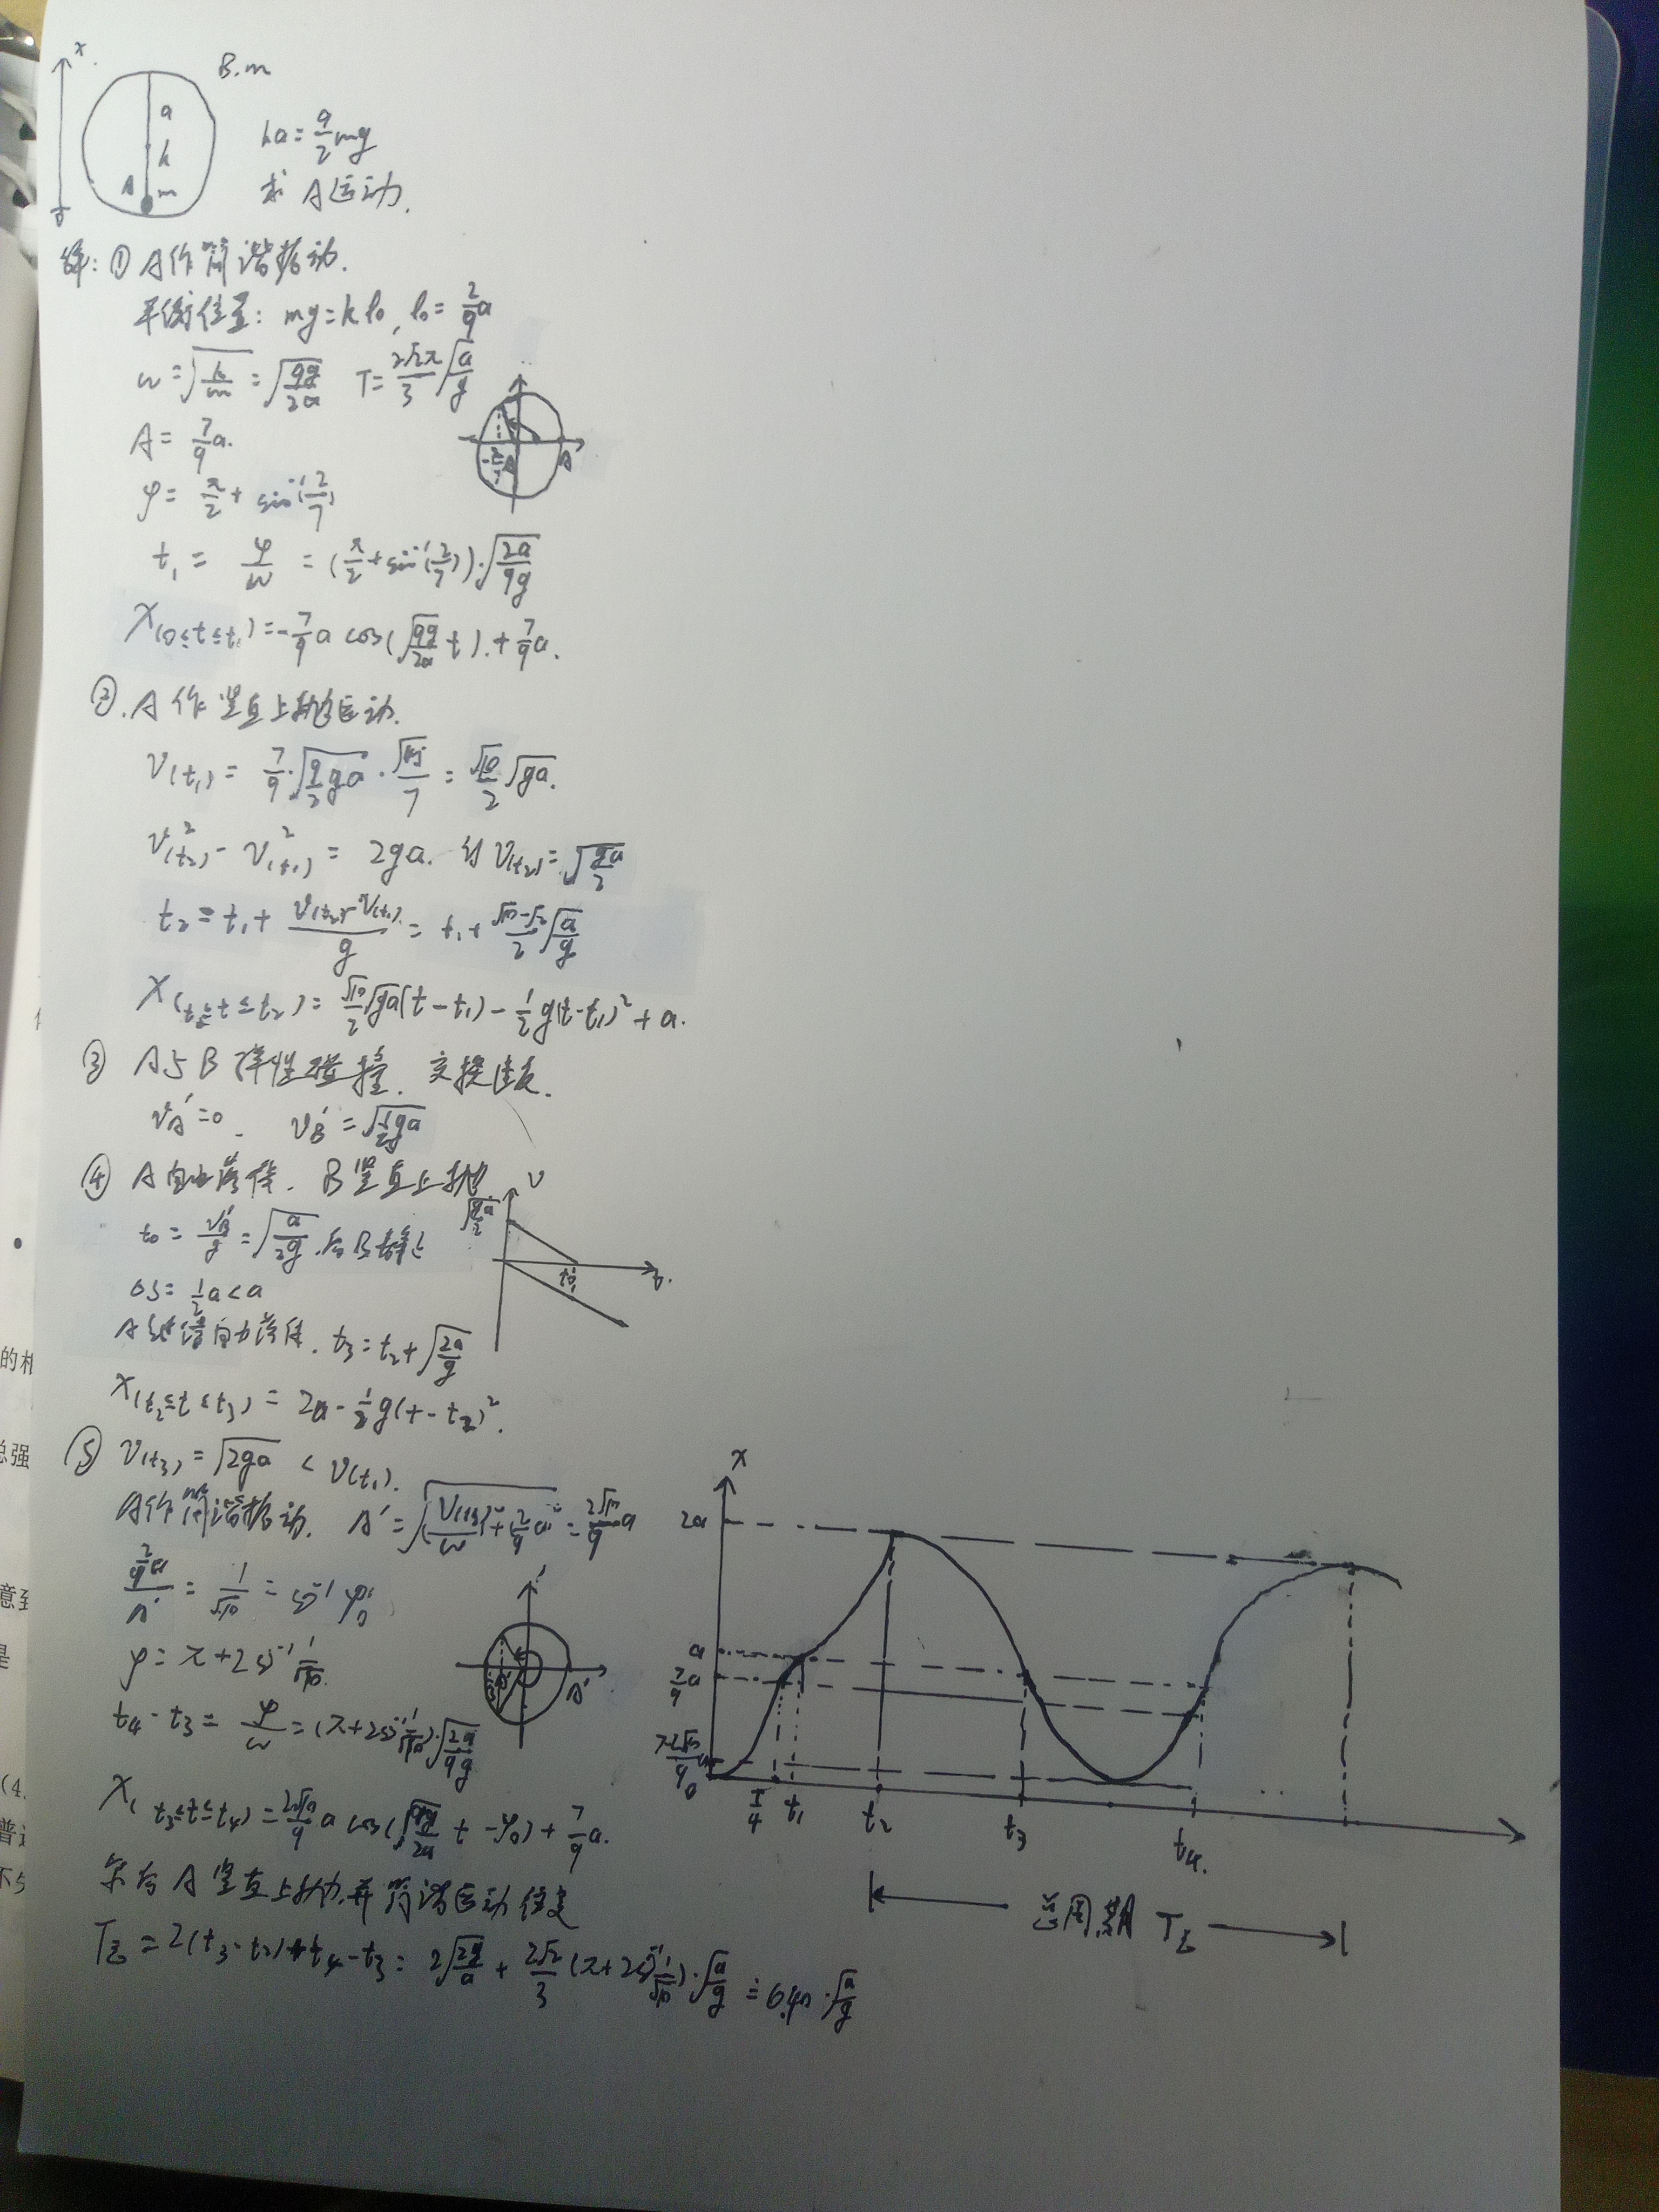 x
B.m
a
k
A m
0
ka=9/2 mg
求 A运动.
解: ① A作简谐振动.
平衡位置: mg=kl₀, l₀=2/9 a
ω=√(k/m)=√(9g/2a) T=2√2π/3 √(a/g)
A=7/9 a.
φ=π/2+sin⁻¹(2/7)
t₁=φ/ω=(π/2+sin⁻¹(2/7))·√(2a/9g)
X(0≤t≤t₁)=-7/9 a cos(√(9g/2a) t)+7/9 a.
②. A作竖直上抛运动.
V(t₁)=7/9·√(9/2 ga)·√45/7=√10/2 √ga.
V²(t₂)-V²(t₁)=2ga. 得 V(t₂)=√(ga/2)
t₂=t₁+(V(t₂)-V(t₁))/g=t₁+(√10-√2)/2 √(a/g)
X(t₁≤t≤t₂)=√10/2 √ga(t-t₁)-1/2 g(t-t₁)²+a.
③ A与B弹性碰撞. 交换速度.
V_A'=0. V_B'=√(1/2 ga)
④ A自由落体. B竖直上抛
t₀=V_B'/g=√(a/2g).后B静止
ΔS=1/2 a<a
A继续自由落体. t₃=t₂+√(2a/g)
X(t₂≤t≤t₃)=2a-1/2 g(t-t₂)².
⑤ V(t₃)=√2ga < V(t₁).
A作简谐振动. A'=√((V(t₃)/ω)²+(2/9 a)²)=2√10/9 a
(2/9 a)/A'=1/√10
φ=π+2sin⁻¹ 1/√10.
t₄-t₃=φ/ω=(π+2sin⁻¹ 1/√10)√(2a/9g)
X(t₃≤t≤t₄)=2√10/9 a cos(√(9g/2a) t-φ₀)+7/9 a.
T总=2(t₃-t₂)+t₄-t₃=2√(2g/a)+2√2/3(π+2sin⁻¹ 1/√10)·√(a/g)=6.40·√(a/g)
x
2a
a
7/9 a
0
T/4
t₁
t₂
t₃
t₄.
总周期 T总